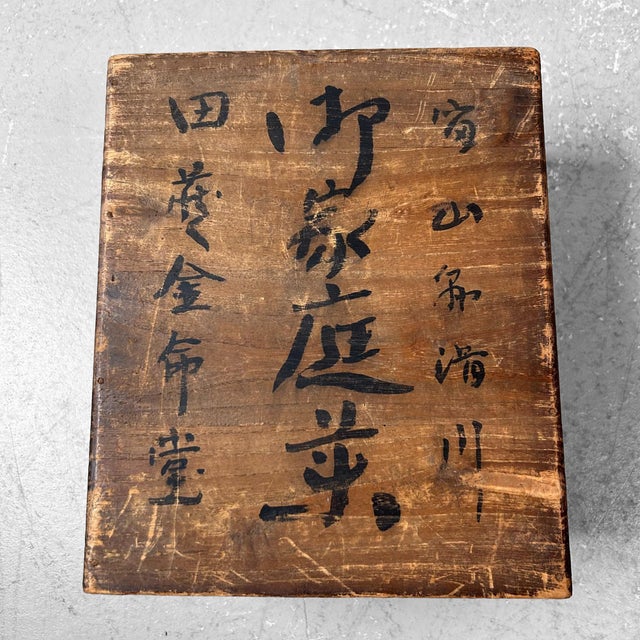 富山県滑川
御家庭薬
田蔵金命堂